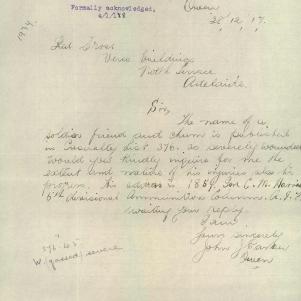 Formally acknowledged,
Owen
28.12.17.
Red Cross
Verco Buildings
North Terrace
Adelaide.
Sir,
The name of a
soldier friend and chum is published
in Casualty list 376. as severely wounded
Would you kindly inquire for me the
extent and nature of his injuries also his
progress. His address is 1859,
Divisional Ammunition Column. A.I.F.
waiting your reply
I am
Yours sincerely
John J
Owen
W/gassed/severe